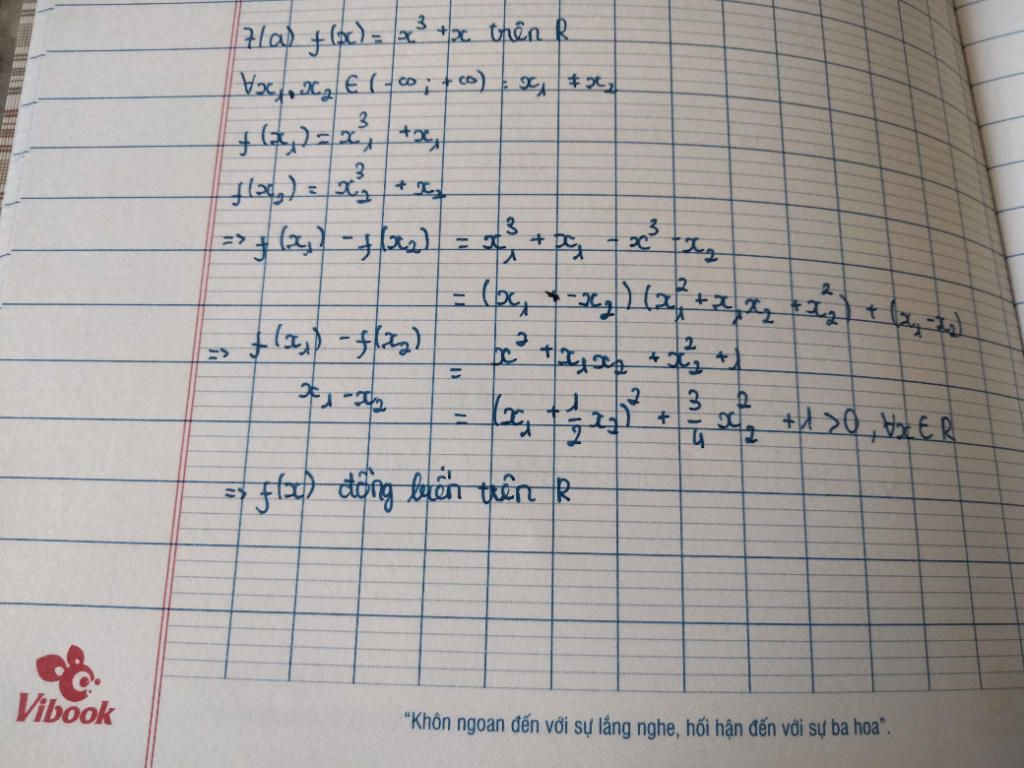 7(a) f(x) = x³ + x trên R
∀x₁, x₂ ∈ (-∞; +∞) : x₁ ≠ x₂
f(x₁) = x₁³ + x₁
f(x₂) = x₂³ + x₂
=> f(x₁) - f(x₂) = x₁³ + x₁ - x³ - x₂
= (x₁ - x₂)(x₁² + x₁x₂ + x₂²) + (x₁ - x₂)
=> f(x₁) - f(x₂) / x₁ - x₂ = x² + x₁x₂ + x₂² + 1
= (x₁ + 1/2 x₂)² + 3/4 x₂² + 1 > 0, ∀x ∈ R
=> f(x) đồng biến trên R
Vibook
"Khôn ngoan đến với sự lắng nghe, hối hận đến với sự ba hoa".